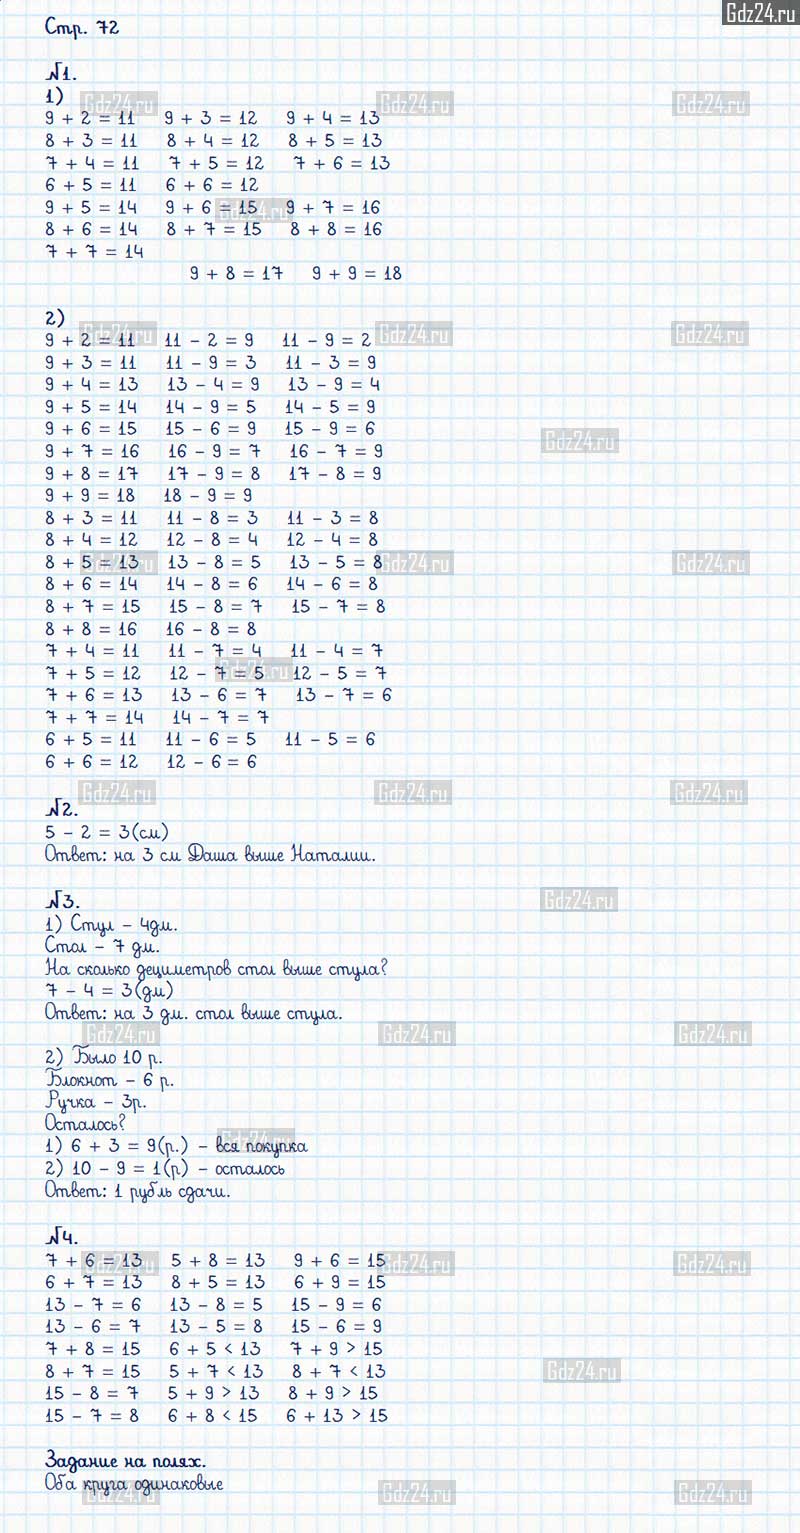 Gdz24.ru
Стр. 72
№1.
1)
9 + 2 = 11 9 + 3 = 12 9 + 4 = 13
8 + 3 = 11 8 + 4 = 12 8 + 5 = 13
7 + 4 = 11 7 + 5 = 12 7 + 6 = 13
6 + 5 = 11 6 + 6 = 12
9 + 5 = 14 9 + 6 = 15 9 + 7 = 16
8 + 6 = 14 8 + 7 = 15 8 + 8 = 16
7 + 7 = 14
9 + 8 = 17 9 + 9 = 18
2)
9 + 2 = 11 11 - 2 = 9 11 - 9 = 2
9 + 3 = 11 11 - 9 = 3 11 - 3 = 9
9 + 4 = 13 13 - 4 = 9 13 - 9 = 4
9 + 5 = 14 14 - 9 = 5 14 - 5 = 9
9 + 6 = 15 15 - 6 = 9 15 - 9 = 6
9 + 7 = 16 16 - 9 = 7 16 - 7 = 9
9 + 8 = 17 17 - 9 = 8 17 - 8 = 9
9 + 9 = 18 18 - 9 = 9
8 + 3 = 11 11 - 8 = 3 11 - 3 = 8
8 + 4 = 12 12 - 8 = 4 12 - 4 = 8
8 + 5 = 13 13 - 8 = 5 13 - 5 = 8
8 + 6 = 14 14 - 8 = 6 14 - 6 = 8
8 + 7 = 15 15 - 8 = 7 15 - 7 = 8
8 + 8 = 16 16 - 8 = 8
7 + 4 = 11 11 - 7 = 4 11 - 4 = 7
7 + 5 = 12 12 - 7 = 5 12 - 5 = 7
7 + 6 = 13 13 - 6 = 7 13 - 7 = 6
7 + 7 = 14 14 - 7 = 7
6 + 5 = 11 11 - 6 = 5 11 - 5 = 6
6 + 6 = 12 12 - 6 = 6
№2.
5 - 2 = 3(см)
Ответ: на 3 см Даша выше Наталии.
№3.
1) Стул - 4дм.
Стол - 7 дм.
На сколько дециметров стол выше стула?
7 - 4 = 3(дм)
Ответ: на 3 дм. стол выше стула.
2) Было 10 р.
Блокнот - 6 р.
Ручка - 3р.
Осталось?
1) 6 + 3 = 9(р.) - вся покупка
2) 10 - 9 = 1(р) - осталось
Ответ: 1 рубль сдачи.
№4.
7 + 6 = 13 5 + 8 = 13 9 + 6 = 15
6 + 7 = 13 8 + 5 = 13 6 + 9 = 15
13 - 7 = 6 13 - 8 = 5 15 - 9 = 6
13 - 6 = 7 13 - 5 = 8 15 - 6 = 9
7 + 8 = 15 6 + 5 < 13 7 + 9 > 15
8 + 7 = 15 5 + 7 < 13 8 + 7 < 13
15 - 8 = 7 5 + 9 > 13 8 + 9 > 15
15 - 7 = 8 6 + 8 < 15 6 + 13 > 15
Задание на полях.
Оба круга одинаковые